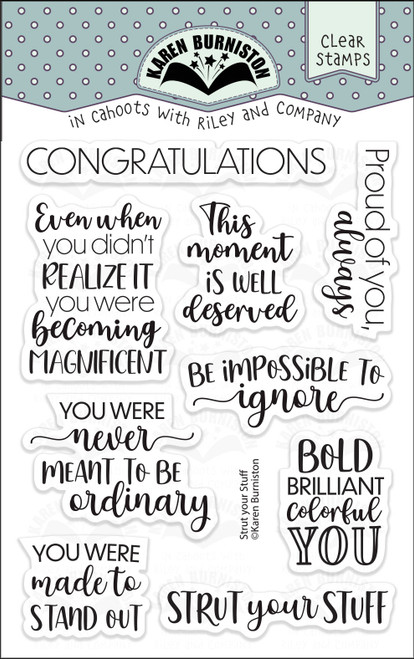 KAREN BURNISTON
CLEAR
STAMPS
in CAHOOTS WITH RILEY AND COMPANY
CONGRATULATIONS
Proud of you,
always
Even when
you didn't
REALIZE IT
you were
becoming
MAGNIFICENT
This
moment
iS WELL
deserved
BE iMPOSSiBLE TO
ignore
YOU WERE
never
MEANT TO BE
ordinary
Strut your Stuff
©Karen Burniston
BOLD
BRILLIANT
colorful
YOU
YOU WERE
made to
STAND OUT
STRUT your STUFF